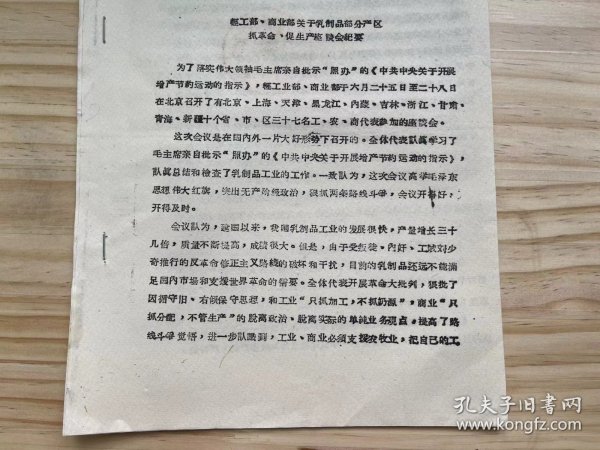 轻工部、商业部关于乳制品部分产区
抓革命、促生产座谈会纪要
为了落实伟大领袖毛主席亲自批示“照办”的《中共中央关于开展
增产节约运动的指示》，轻工业部、商业部于六月二十五日至二十八日
在北京召开了有北京、上海、天津、黑龙江、内蒙、吉林、浙江、甘肃、
青海、新疆十个省、市、区三十七名工、农、商代表参加的座谈会。
这次会议是在国内外一片大好形势下召开的。全体代表认真学习了
毛主席亲自批示“照办”的《中共中央关于开展增产节约运动的指示》，
认真总结和检查了乳制品工业的工作。一致认为，这次会议高举毛泽东
思想伟大红旗，突出无产阶级政治，狠抓两条路线斗争，会议开得好，
开得及时。
会议认为，建国以来，我国乳制品工业的发展很快，产量增长三十
几倍，质量不断提高，成绩很大。但是，由于受叛徒、内奸、工贼刘少
奇推行的反革命修正主义路线的破坏和干扰，目前的乳制品还远不能满
足国内市场和支援世界革命的需要。全体代表开展革命大批判，狠批了
因循守旧、右倾保守思想，和工业“只抓加工，不抓奶源”，商业“只
抓分配，不管生产”的脱离政治、脱离实际的单纯业务观点，提高了路
线斗争觉悟，进一步认识到，工业、商业必须支援农牧业，把自己的工
孔夫子旧书网
www.kongfz.com